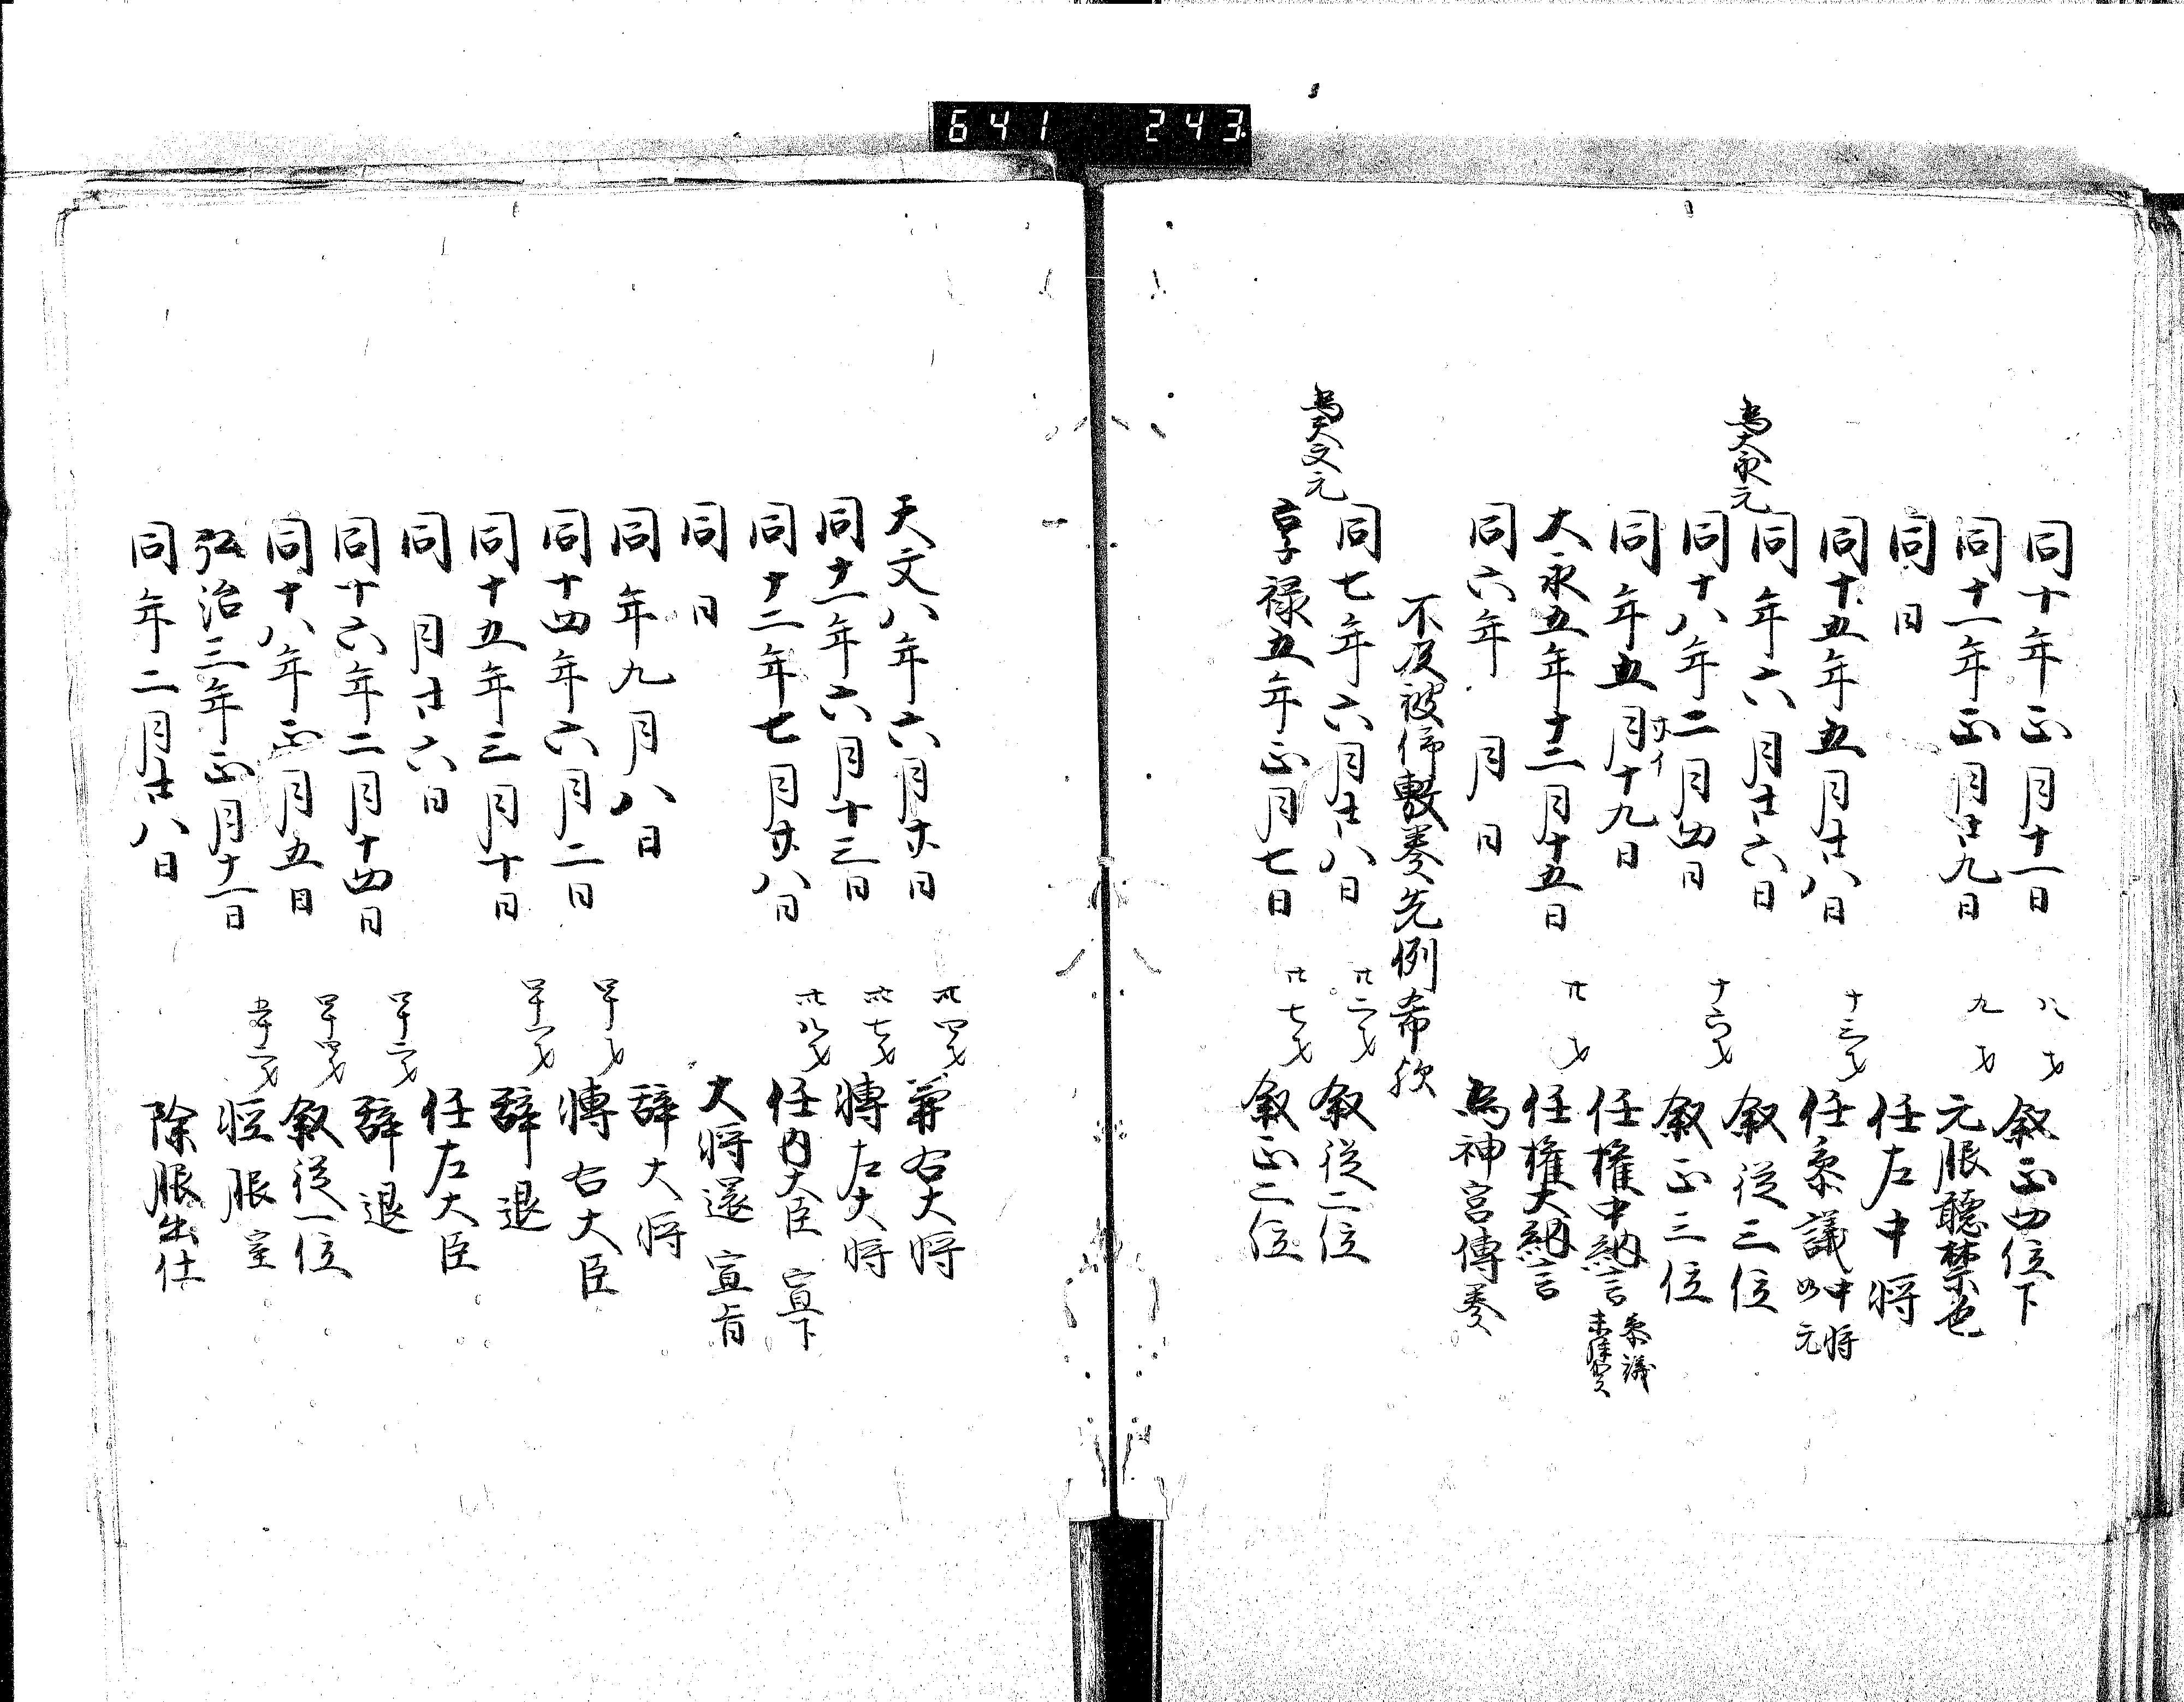 641 243
同十年正月十一日 八才 叙正四位下
同十一年正月廿九日 九才 元服聴禁色
同日 任左中将
同十五年五月廿八日 十三才 任参議中将如元
為大永元
同年六月廿六日 叙従三位
同十八年二月四日 十六才 叙正三位
同年五月十九日 任権中納言 参議
大永五年十二月十五日 廿才 任権大納言
同六年 月 日 為神宮傳奏
不及被停敷奏先例希欤
同七年六月廿八日 廿二才 叙従二位
為天文元
享禄五年正月七日 廿七才 叙正二位
天文八年六月廿日 卅四才 兼右大将
同十一年六月十三日 卅七才 轉左大将
同十二年七月廿八日 卅八才 任内大臣 宣下
同日 大将還宣旨
同年九月八日 辞大将
同十四年六月二日 四十才 轉右大臣
同十五年三月十日 四十一才 辞退
同 月廿六日 任左大臣
同十六年二月十四日 四十二才 辞退
同十八年正月五日 四十四才 叙従一位
弘治三年正月十一日 五十二才 軽服室
同年二月廿八日 除服出仕